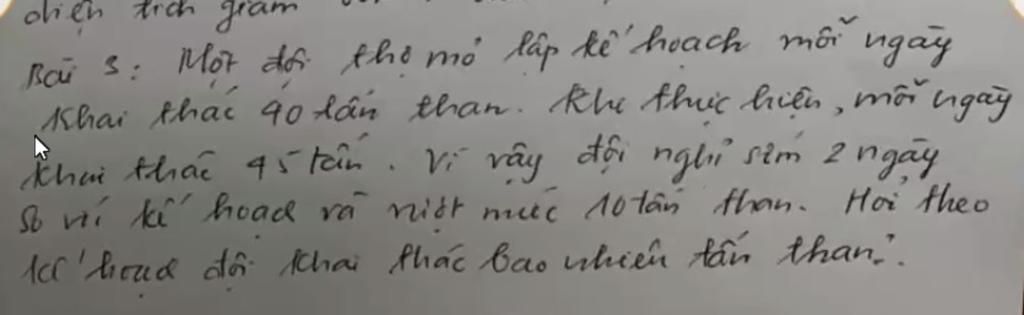 diện tích giảm
Bài 3: Một đội thợ mỏ lập kế hoạch mỗi ngày
Khai thác 40 tấn than. Khi thực hiện, mỗi ngày
khai thác 45 tấn. Vì vậy đội nghỉ sớm 2 ngày
so với kế hoạch và vượt mức 10 tấn than. Hỏi theo
kế hoạch đội khai thác bao nhiêu tấn than?